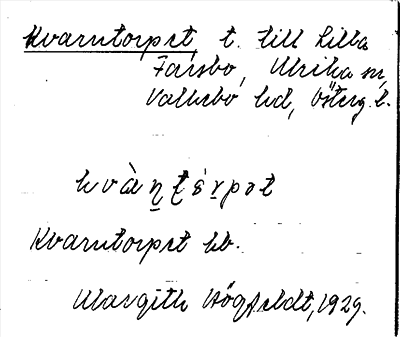 Kvarntorpet t. till Lilla
Fårsbo, Ulrika sn,
Valkebo hd, Österg. l.
kvàṇṭórpet
Kvarntorpet bb.
Margith Högfeldt, 1929.